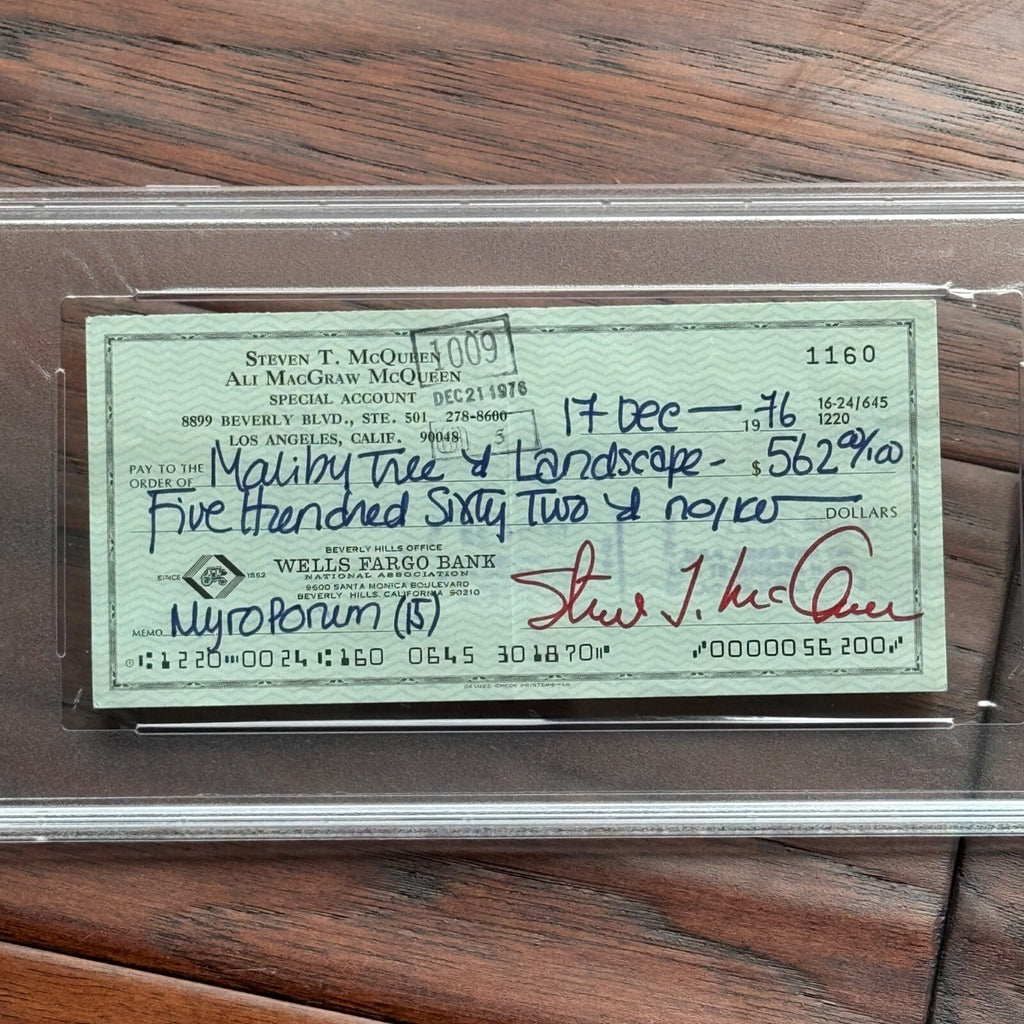 STEVEN T. MCQUEEN
ALI MACGRAW MCQUEEN
SPECIAL ACCOUNT
8899 BEVERLY BLVD., STE. 501 278-8600
LOS ANGELES, CALIF. 90048
1009
DEC 21 1976
5
1160
17 Dec — 1976
16-24/645
1220
PAY TO THE ORDER OF Maliby Tree & Landscape - $ 562 00/100
Five Hundred Sixty Two & no/xx DOLLARS
BEVERLY HILLS OFFICE
SINCE 1852
WELLS FARGO BANK
NATIONAL ASSOCIATION
9600 SANTA MONICA BOULEVARD
BEVERLY HILLS, CALIFORNIA 90210
Steve T. McQueen
MEMO Myroporum (15)
⑆1220⑉0024⑆160 0645 301870⑈ ⑇0000056200⑇
DELUXE CHECK PRINTERS-LK